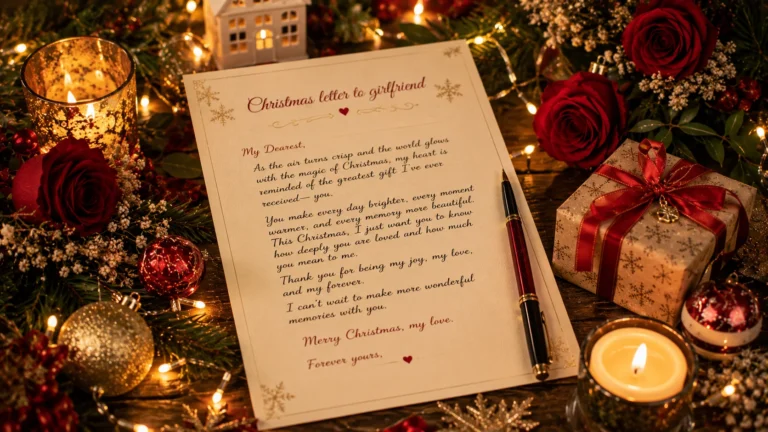 Christmas letter to girlfriend
My Dearest,
As the air turns crisp and the world glows
with the magic of Christmas, my heart is
reminded of the greatest gift I've ever
received— you.
You make every day brighter, every moment
warmer, and every memory more beautiful.
This Christmas, I just want you to know
how deeply you are loved and how much
you mean to me.
Thank you for being my joy, my love,
and my forever.
I can't wait to make more wonderful
memories with you.
Merry Christmas, my love.
Forever yours,